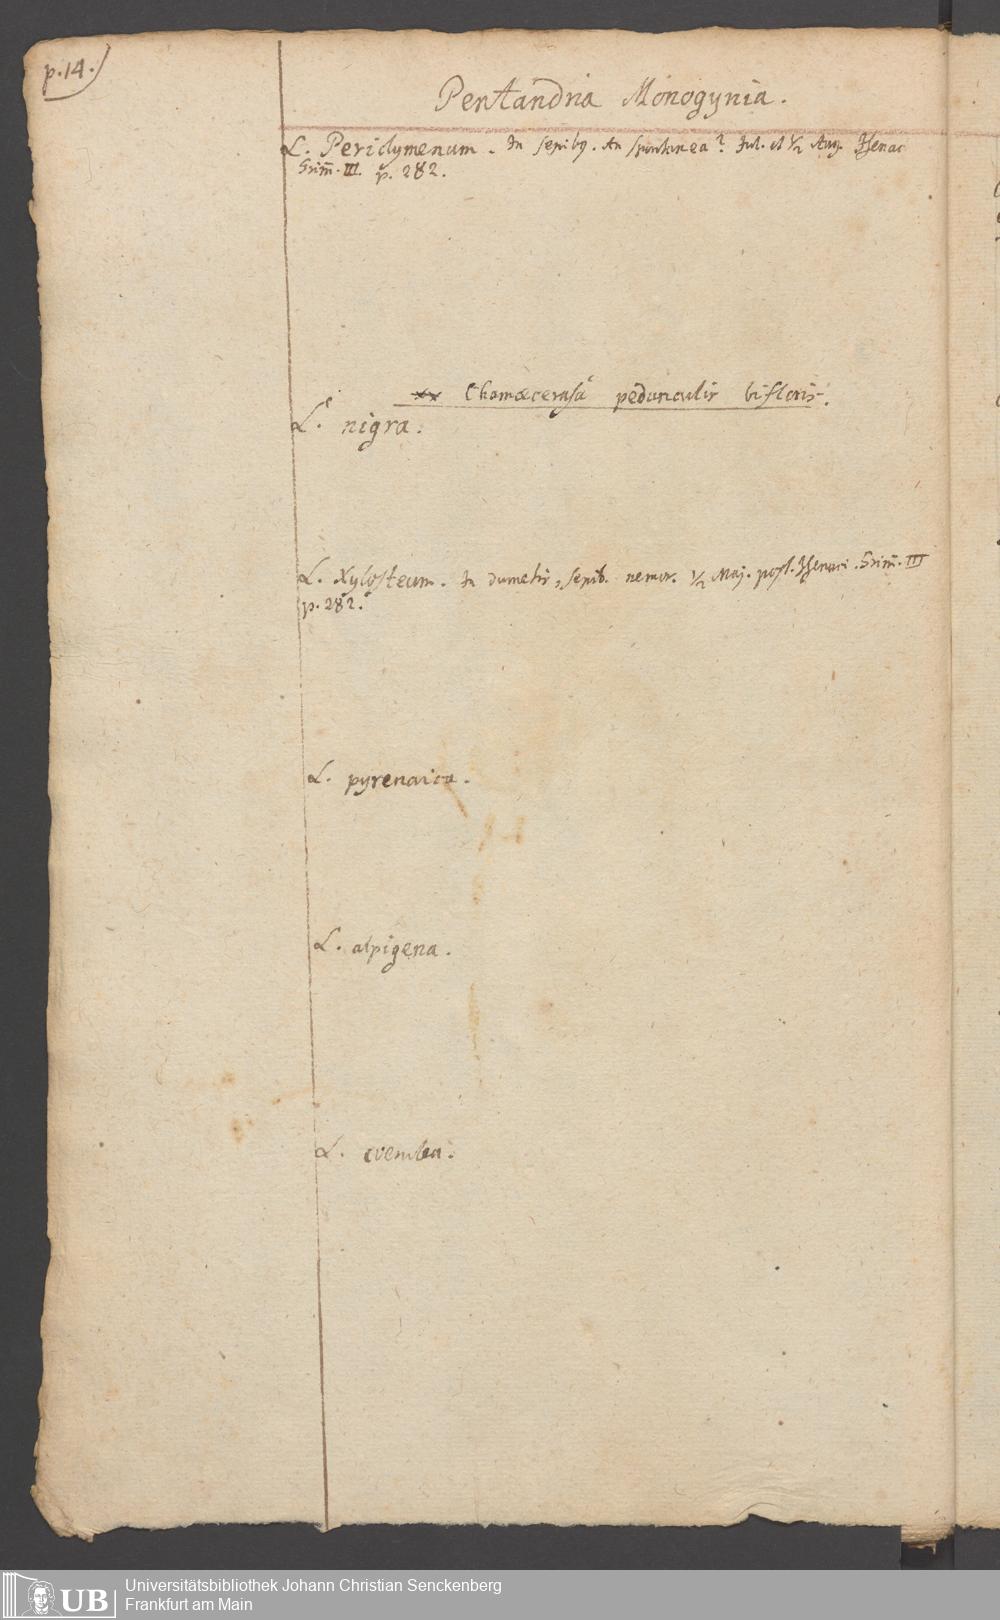 p. 14.
Pentandria Monogynia.
L. Periclymenum. In sepibq. An spontanea? Jul. et ½ Aug. Isenac
Grim̄. III. p. 282.
** Chamaecerasa pedunculis bifloris.
L. nigra.
L. Xylosteum. In dumetis, sepib. nemor. ½ Maj. post. Isenaci. Grim̄. III
p. 282.
L. pyrenaica.
L. alpigena.
L. coerulea.
UB
Universitätsbibliothek Johann Christian Senckenberg
Frankfurt am Main